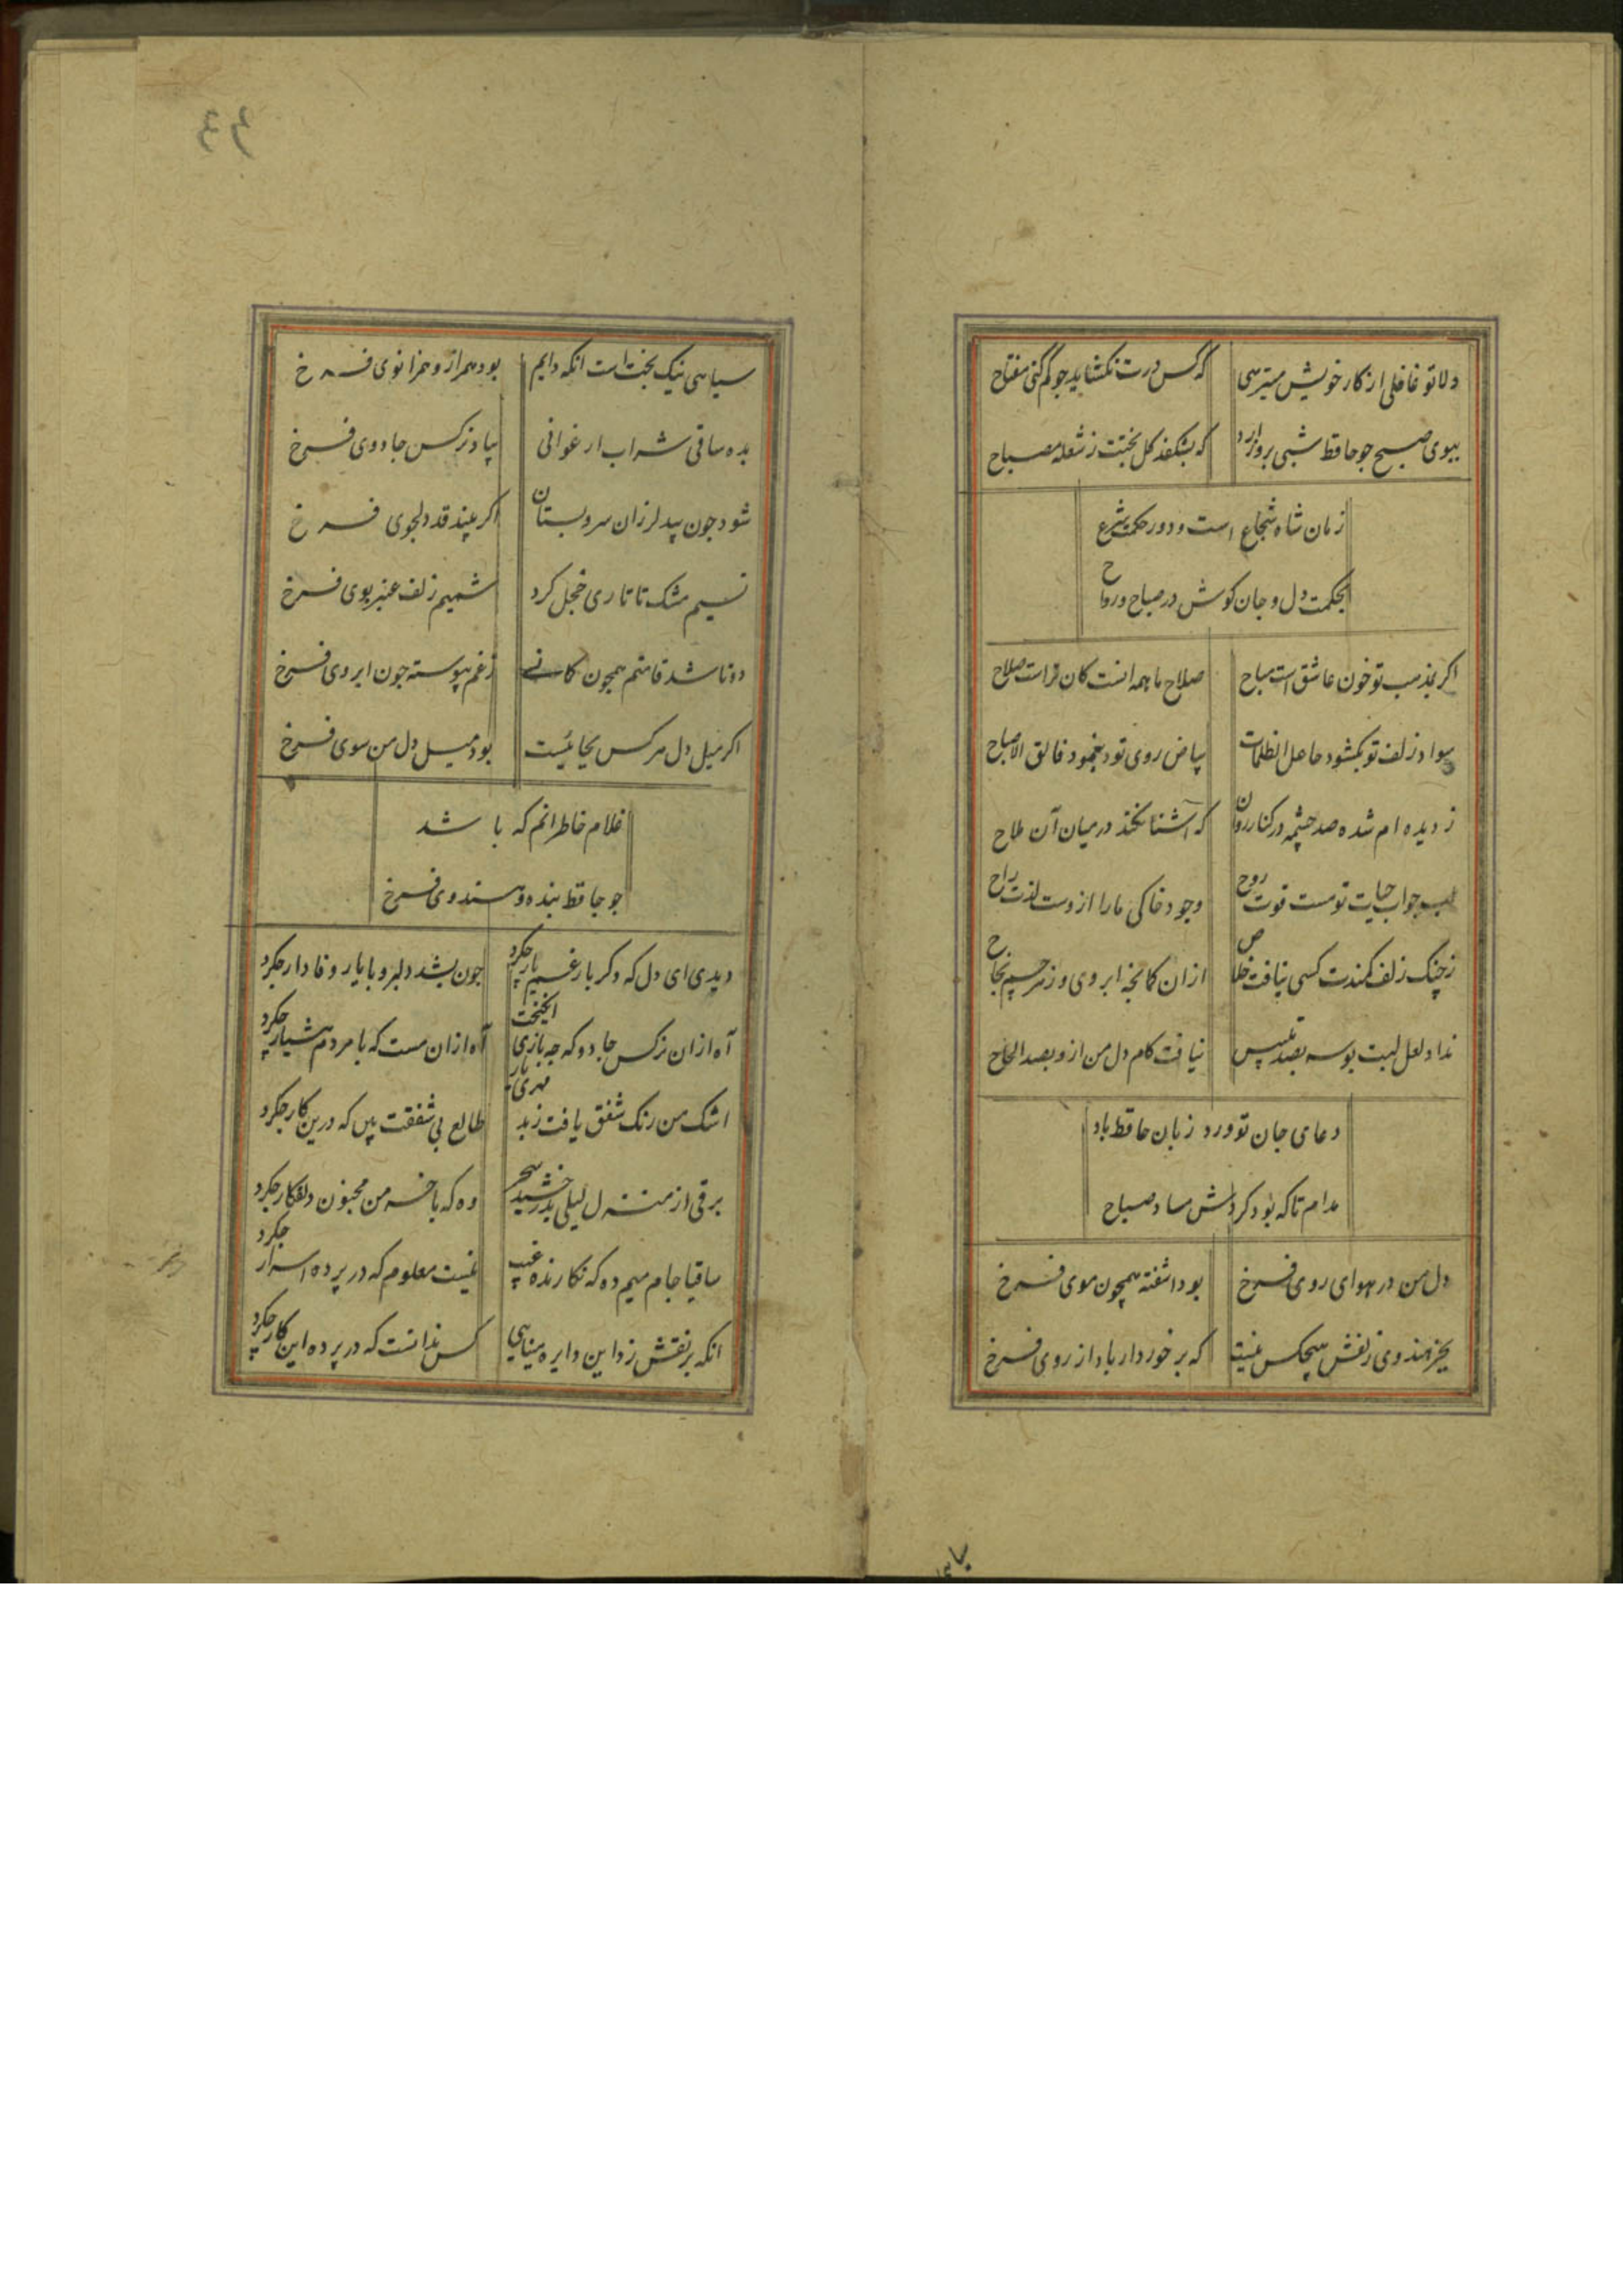 دلا تو غافلی از کار خویش میترسی که کس درت نکشاید چو کم کنی مفتاح
ببوی صبح چو حافظ شبی بروز آرد که بشکفد کل بختت ز شعله مصباح
زمان شاه شجاع است و دور حکمت شرع
بحکمت دل و جان کوش در صباح و رواح
اکر بمذهب تو خون عاشق است مباح صلاح ما همه انست کان تراست صلاح
سواد زلف تو بکشود جاعل الظلمات بیاض روی تو بنمود فالق الاصباح
ز دیده ام شده صد چشمه در کنار روان که آشنا نکند در میان آن ملاح
لب چو آب حیات تو هست قوت روح وجود خاکی ما را از وست لذت راح
ز چنک زلف کمندت کسی نیافت خلاص از ان کمانچه ابروی و ز تیر چشم نجاح
نداد لعل لبت بوسه بصد تلبیس نیافت کام دل من ازو بصد الحاح
دعای جان تو ورد زبان حافظ باد
مدام تا که بود کردش مسا و صباح
دل من در هوای روی فرخ بود اشفته همچون موی فرخ
بجز هندوی زلفش هیچکس نیست که برخوردار باد از روی فرخ
٤٤
سیاهی نیک بخت است انکه دایم بود همراز و همزانوی فرخ
بده ساقی شراب ارغوانی بیاد نرکس جادوی فرخ
شود چون بید لرزان سرو بستان اکر بیند قد دلجوی فرخ
نسیم مشک تاتاری خجل کرد شمیم زلف عنبربوی فرخ
دوتا شد قامتم همچون کمانی ز غم پیوسته چون ابروی فرخ
اکر میل دل هر کس بجائیست بود میل دل من سوی فرخ
غلام خاطر انم که باشد
چو حافظ بنده و هندوی فرخ
دیدی ای دل که دکر بار غم یار چکرد چون بشد دلبر و با یار وفادار چکرد
آه ازان نرکس جادو که چه بازی انکیخت آه ازان مست که با مردم هشیار چکرد
اشک من رنک شفق یافت ز بیمهری یار طالع بی شفقت بین که درین کار چکرد
برقی از منزل لیلی بدرخشید سحر وه که با خرمن مجنون دلفکار چکرد
ساقیا جام میم ده که نکارنده غیب نیست معلوم که در پرده اسرار چکرد
انکه پر نقش زد این دایره مینایی کس ندانست که در پرده این کار چکرد